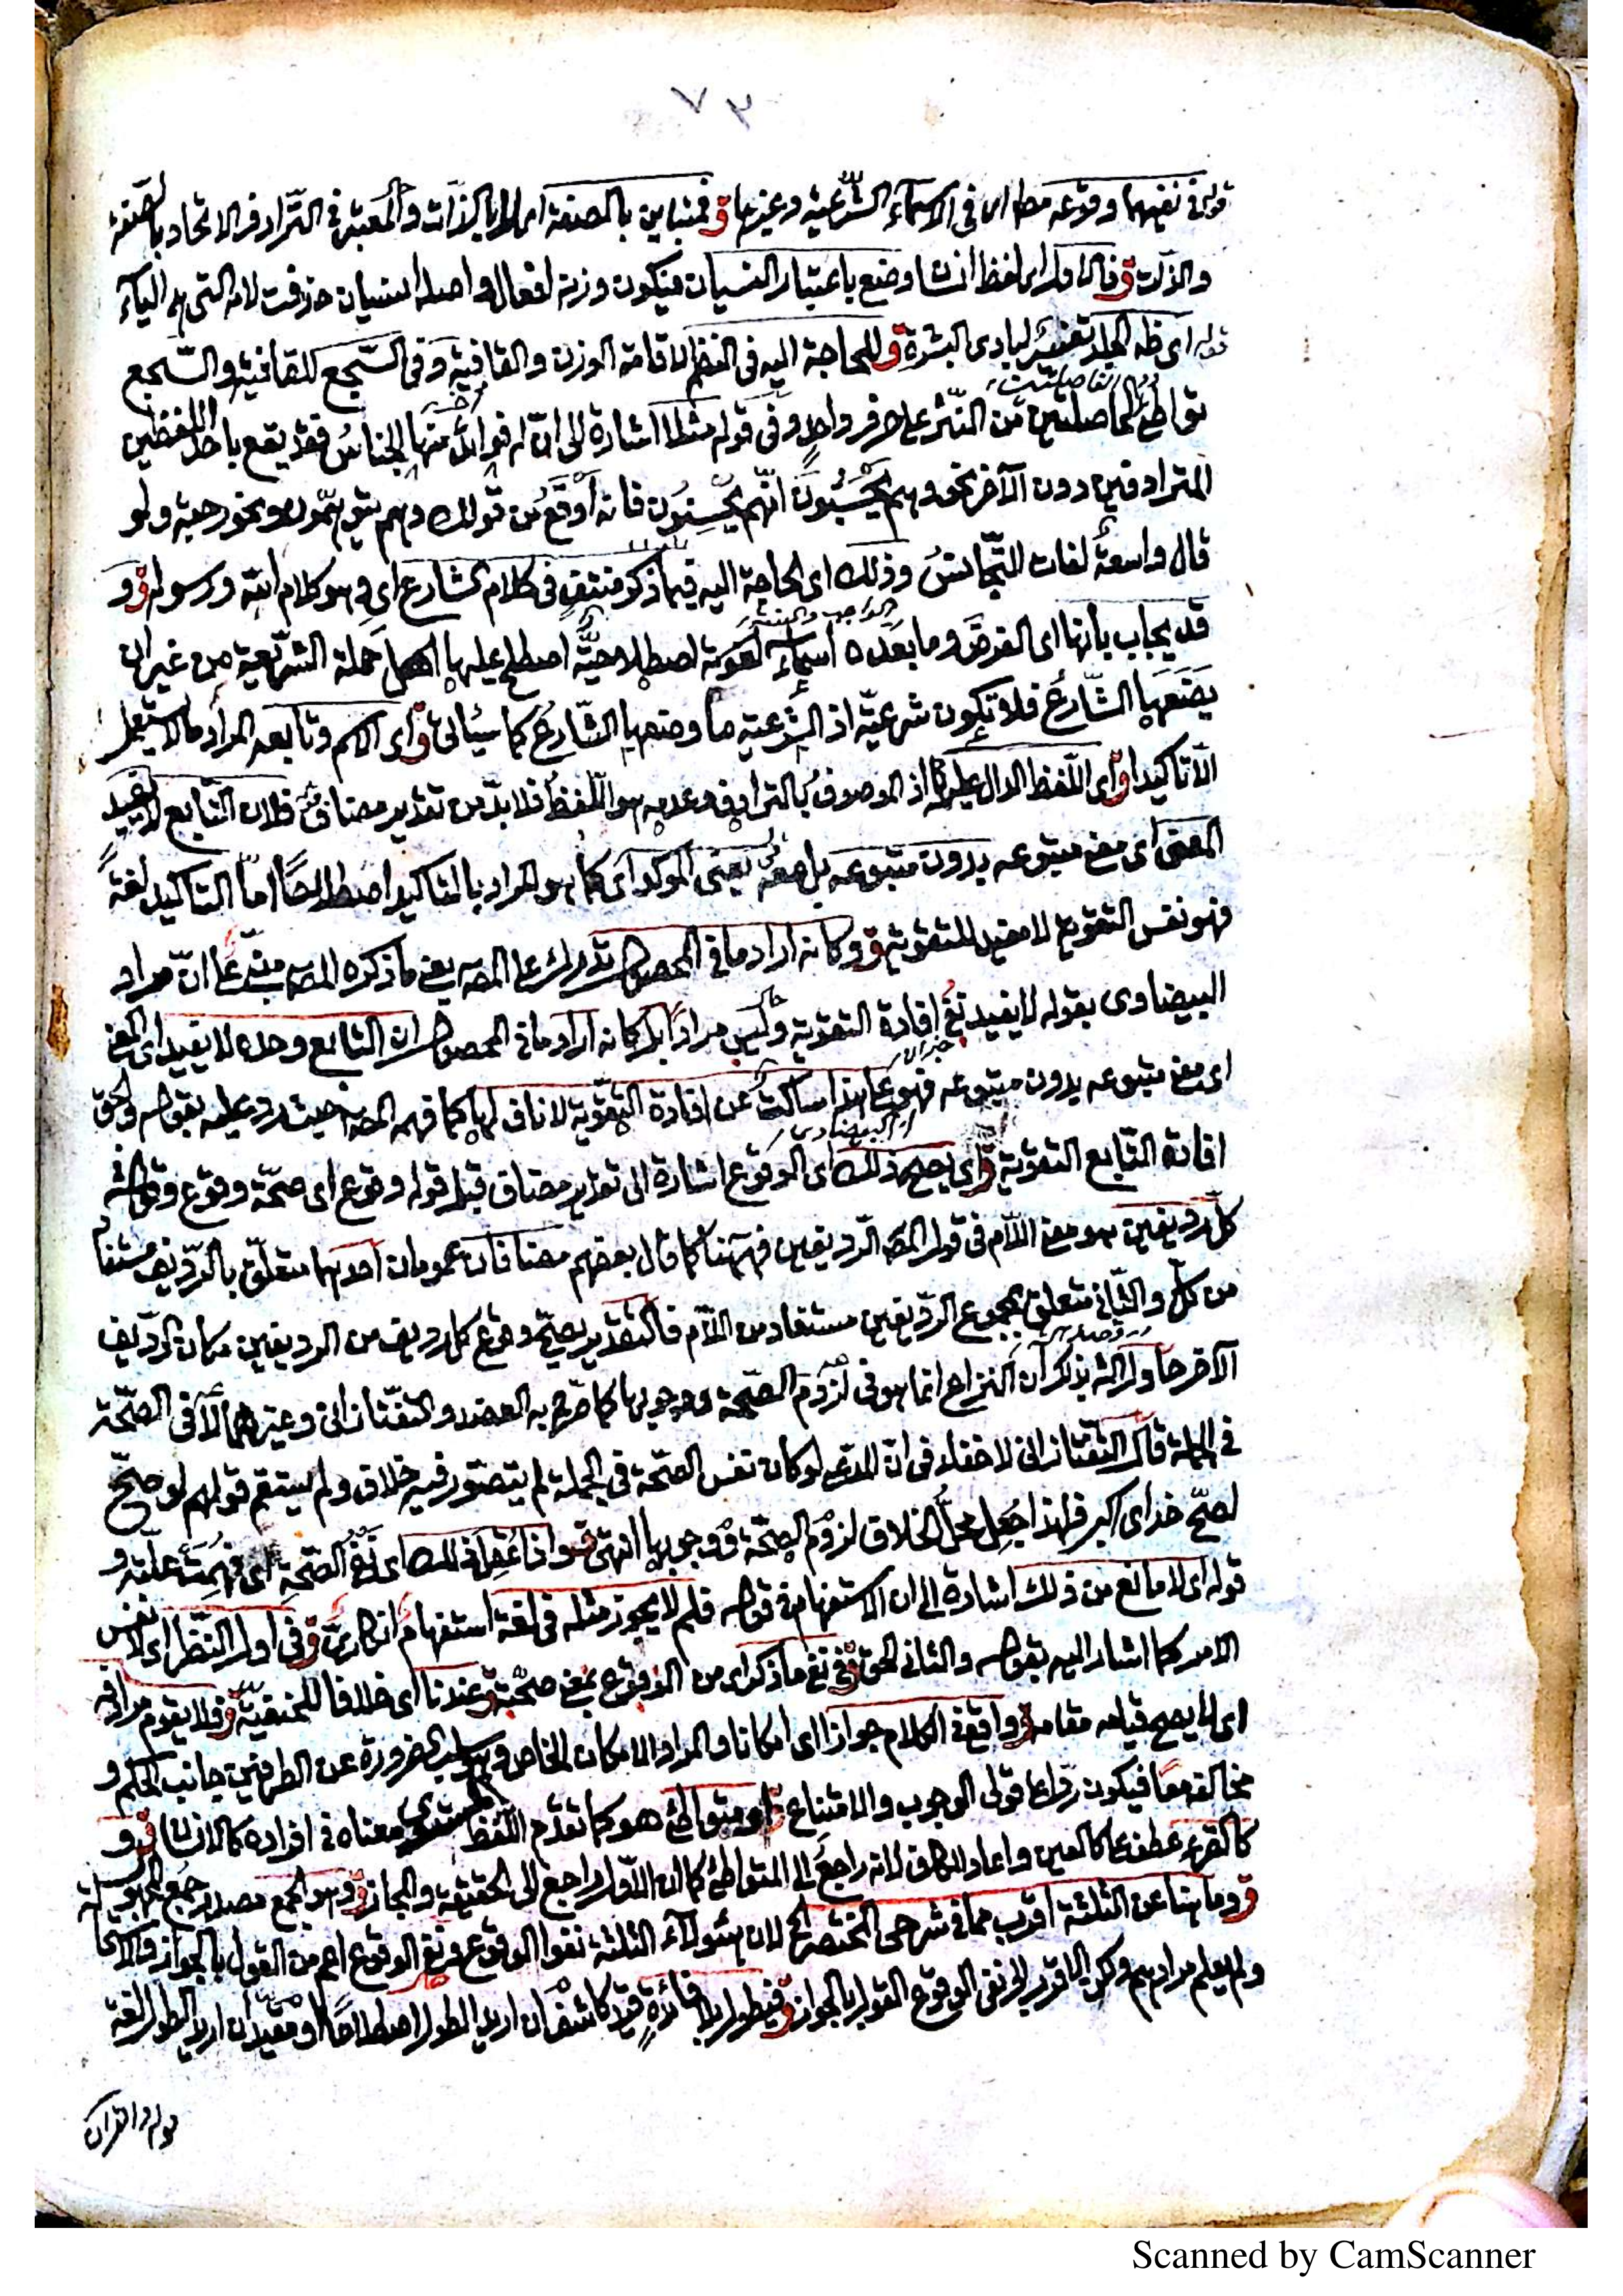 ٧٣
قوله في نفيهما وقوعه مطلقا اى في الاسماء الشرعية وغيرها ق فمتباين بالصفة اى لا بالذات والمعتبر في الترادف الاتحاد بالصفة
والذات ق فالاول اى لفظ انسان وضع باعتبار النسيان فيكون وزنه افعال واصله انسيان حذفت لامه التى هى الياء
قوله اى ظاهر الجلد تفسير لبادى البشرة ق للحاجة اليه في النظم لاقامة الوزن والقافية وفي السجع للقافية والسجع
تواطئ الفاصلتين من النثر على حرف واحد وفي قوله مثلا اشارة الى ان له فوائد أخر منها الجناس فقد يقع باحد اللفظين
المترادفين دون الآخر نحو وهم يحسبون انهم يحسنون فانه اوقع من قولك وهم يتوهمون ونحو رحبة ولو
قال واسعة لفات التجانس وذلك اى الحاجة اليه فيما ذكر منتف في كلام الشارع اى وهو كلام الله ورسوله ق و
قد يجاب بانها اى الفرض وما بعده اسماء لغوية اصطلاحية اصطلح عليها اهل حملة الشريعة من غير ان
يضعها الشارع فلا تكون شرعية اذ الشرعية ما وضعها الشارع كما سيأتى ق اى الاسم وتابعه المراد ما لا يستعمل
الا تاكيدا ق اى اللفظ الدال عليهما اذ الموصوف بالترادف وعدمه هو اللفظ فلا بد من تقدير مضاف ق فلان التابع لا يفيد
المعنى اى معنى متبوعه بدون متبوعه بل معه يعنى المؤكد اى كما هو المراد بالتاكيد اصطلاحا اما التاكيد لغة
فهو نفس التقوية لا مفيد للتقوية ق وكانه اراد ما في المحصول على المص يعنى ما ذكره المص مبنى على ان مراد
البيضاوى بقوله لا يفيد نفى افادة التقوية وليس مرادا بل كانه اراد ما في المحصول ان التابع وحده لا يفيد اى المعنى
اى معنى متبوعه بدون متبوعه فهو على هذا ساكت عن افادة التقوية لا ناف لها كما فهمه المص حيث رد عليه بقوله والحق
افادة التابع التقوية ق اى يصح ذلك اى الوقوع اشارة الى تقدير مضاف قبل قوله وقوع اى صحة وقوع وقوله
كل رديفين هو معنى اللام في قول المص الرديفين فههنا كما قال بعضهم مضافان عمومان احدهما متعلق بالرديف مستفاد
من كل والثانى متعلق بمجموع الرديفين مستفاد من اللام فالتقدير يصح وقوع كل رديف من الرديفين مكان الرديف
الآخر حاول الش بذكر ان النزاع انما هو في لزوم الصحة ووجوبها كما صرح به العضد والتفتازانى وغيرهما لا في الصحة
في الجملة قال التفتازانى لا خفاء في ان المدعى لو كان نفس الصحة في الجملة لم يتصور فيه خلاف ولم يستقم قولهم لو صح
لصح خداى اكبر فلهذا جعل محل الخلاف لزوم الصحة ووجوبها انتهى ق واذا عقل ذلك اى نفى الصحة اى فهمت علته و
قوله اى لا مانع من ذلك اشارة الى ان الاستفهام في قوله فلم لا يجوز مثله في لغة استفهام انكارى ق في اول النظر اى لا نفس
الامر كما اشار اليه بقوله والثانى الحق ق في نفى ما ذكر اى من الوقوع بمعنى صحته ق عندنا اى خلافا للحنفية ق فلا يقوم مرادفه
اى لا يصح قيامه مقامه ق واقع في الكلام جوازا اى امكانا والمراد الامكان الخاص وهو سلب الضرورة عن الطرفين جانب الحكم و
مخالفه معا فيكون ردا على قولى الوجوب والامتناع ق او متواطئ هو كما تقدم اللفظ المستوى معناه في افراده كالانسان ق و
كالقرء عطف على كالعين واعاد الكاف لانه راجع الى المتواطئ كما ان الاول راجع الى الحقيقة والمجاز ق وهو الجمع مصدر جمع
ق وما هنا عن الثلثة اقرب مما في شرحى المختصر الخ لان هئولاء الثلثة نفوا الوقوع ونفى الوقوع اعم من القول بالجواز والاحالة
ولم يعلم مرادهم ولكن الاقرب الى نفى الوقوع القول بالجواز ق فيطول بلا فائدة قيد كاشف ان اريد الطول اصطلاحا او مقيد ان اريد الطول لغة
قوله والقرآن
Scanned by CamScanner